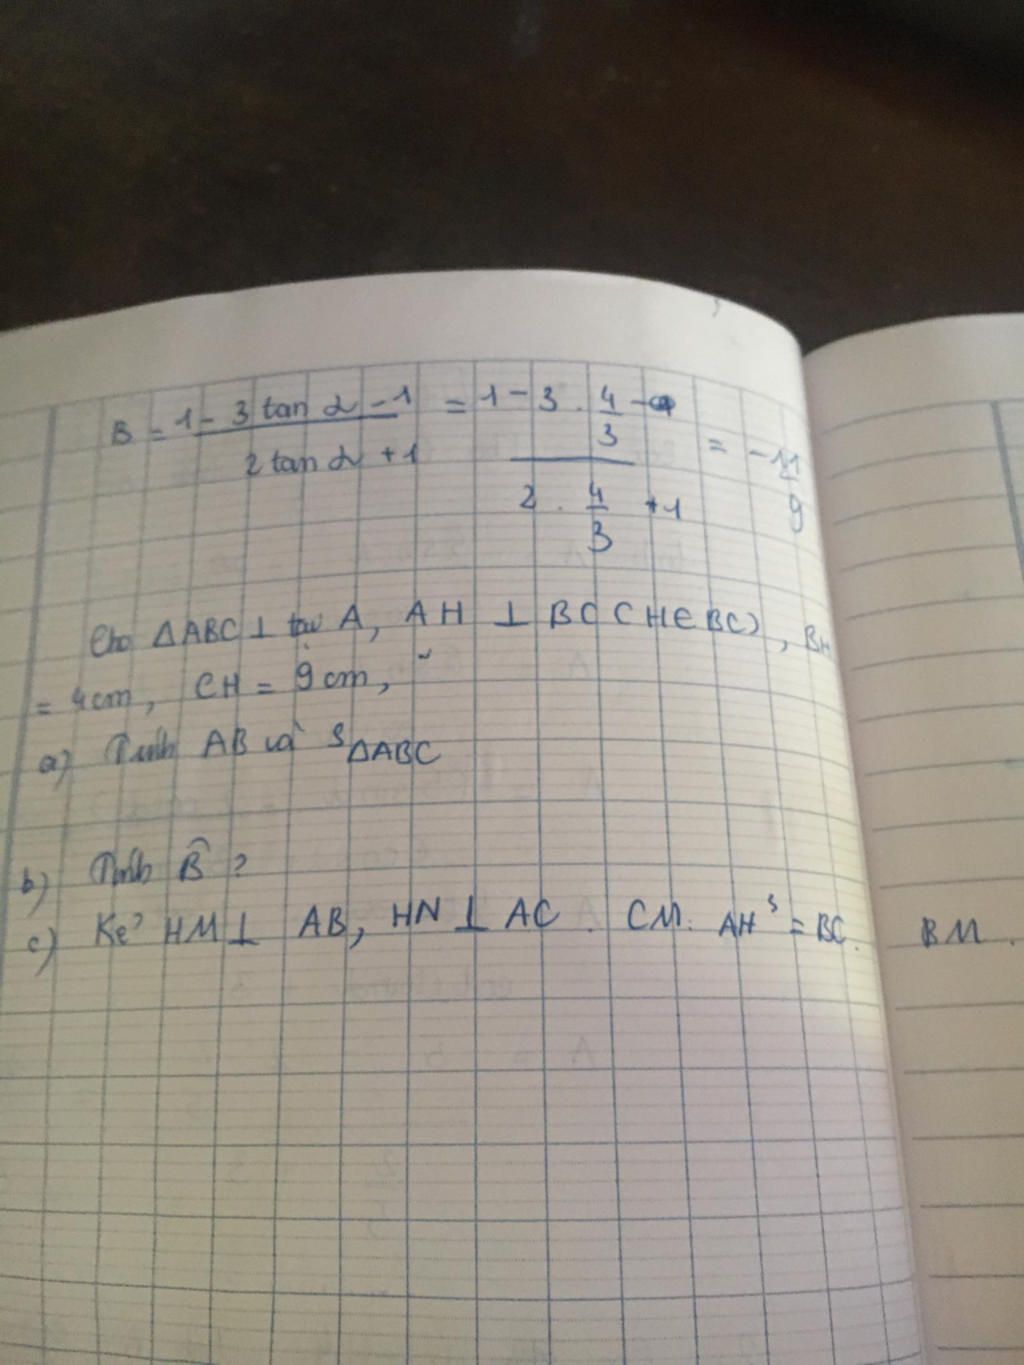 B = 1 - 3 tan α - 1 / 2 tan α + 1 = 1 - 3 . 4/3 / 2 . 4/3 + 1 = -11/9
Cho ΔABC ⊥ tại A, AH ⊥ BC (H∈BC), BH
= 4cm, CH = 9cm,
a) Tính AB và SΔABC
b) Tính B̂ ?
c) Kẻ HM ⊥ AB, HN ⊥ AC. CM: AH³ = BC. BM.